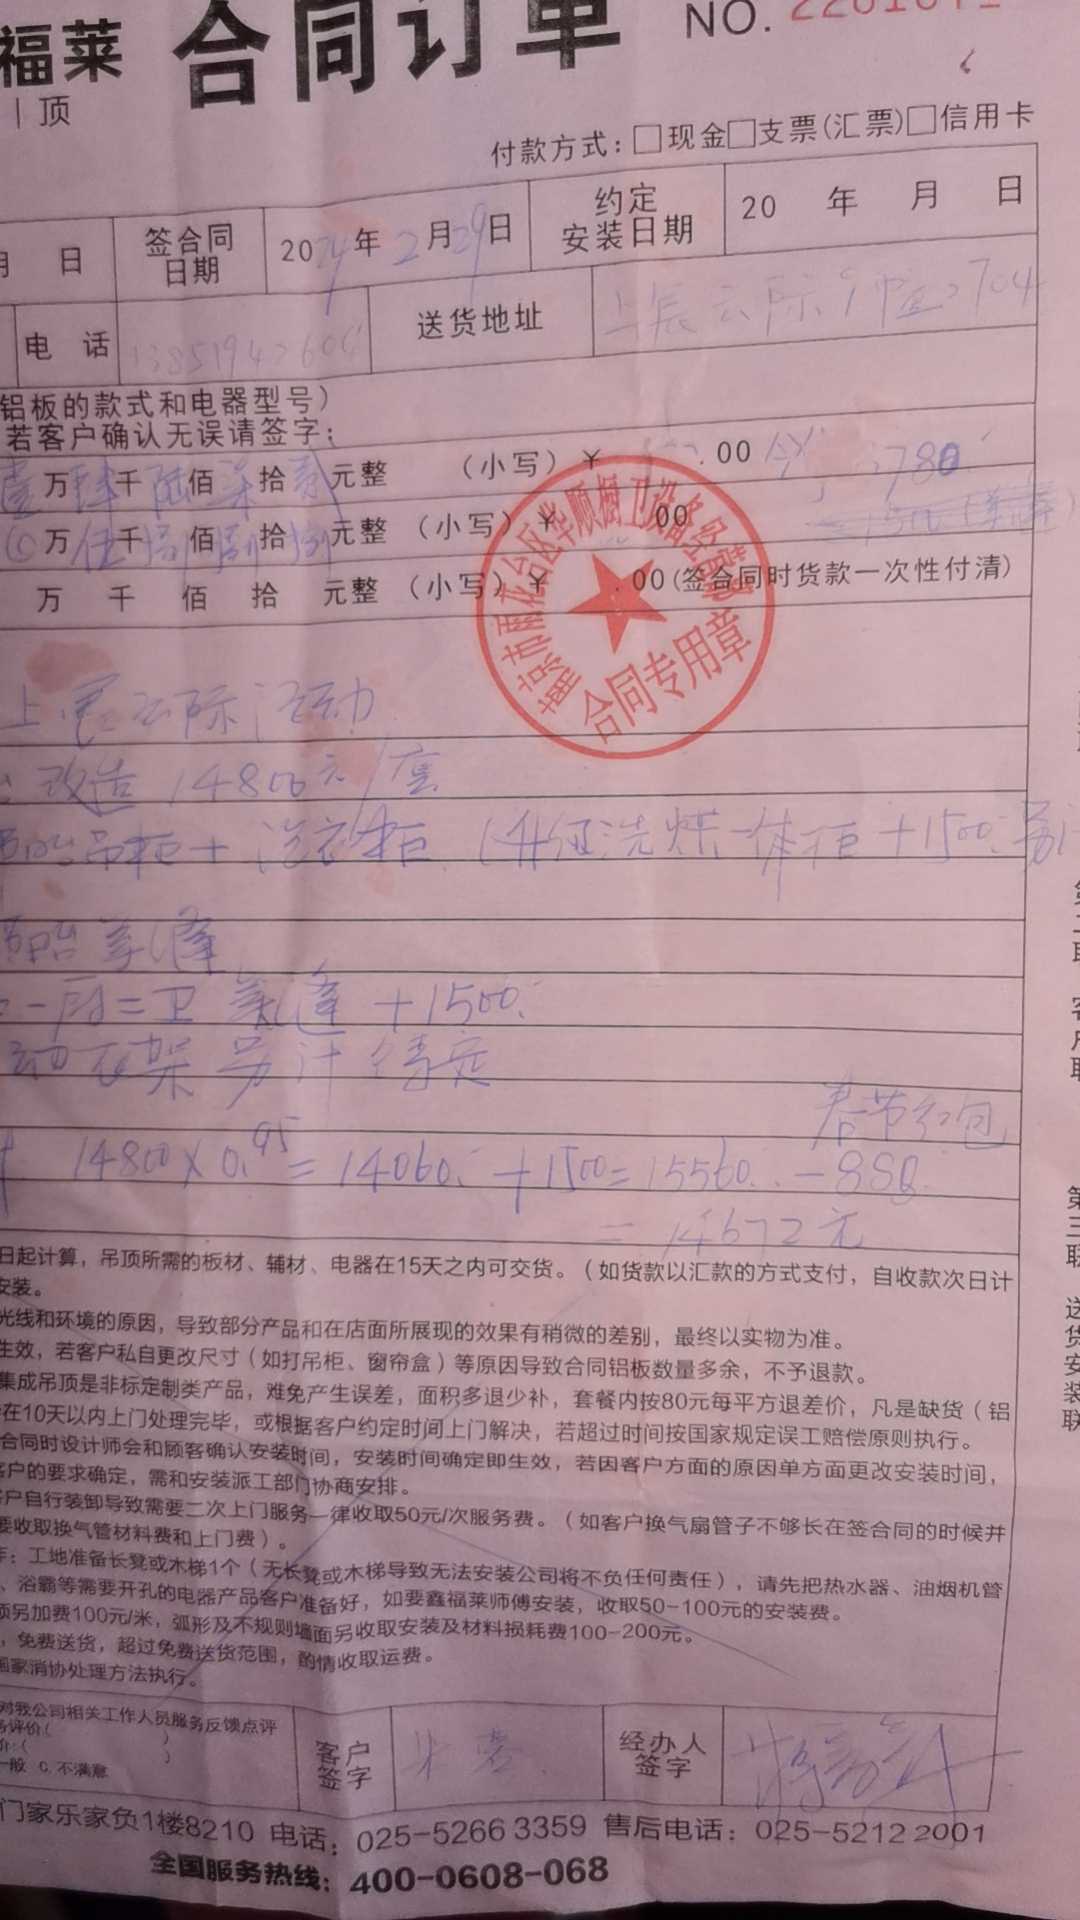 福莱 合同订单 NO.
顶
付款方式：□现金□支票(汇票)□信用卡
月 日 签合同日期 2024年2月29日 约定安装日期 20 年 月 日
电 话 送货地址 上宸云际 704
铝板的款式和电器型号）
若客户确认无误请签字：
壹万肆千陆佰柒拾贰元整 （小写）￥ .00
万伍千 佰 拾 元整 （小写）￥ 00
万 千 佰 拾 元整 （小写）￥ .00(签合同时货款一次性付清)
南京市雨花台区华顺厨卫设备经营部
合同专用章
上宸云际活动
改造 14800元/套
吊柜+洗衣柜 洗烘一体柜+1500
美缝
一厨二卫 美缝 +1500.
动衣架另计
春节红包
14800×0.95=14060.+1500=15560.-888.
=14672元
日起计算，吊顶所需的板材、辅材、电器在15天之内可交货。（如货款以汇款的方式支付，自收款次日计
安装。
光线和环境的原因，导致部分产品和在店面所展现的效果有稍微的差别，最终以实物为准。
生效，若客户私自更改尺寸（如打吊柜、窗帘盒）等原因导致合同铝板数量多余，不予退款。
集成吊顶是非标定制类产品，难免产生误差，面积多退少补，套餐内按80元每平方退差价，凡是缺货（铝
在10天以内上门处理完毕，或根据客户约定时间上门解决，若超过时间按国家规定误工赔偿原则执行。
合同时设计师会和顾客确认安装时间，安装时间确定即生效，若因客户方面的原因单方面更改安装时间，
客户的要求确定，需和安装派工部门协商安排。
客户自行装卸导致需要二次上门服务一律收取50元/次服务费。（如客户换气扇管子不够长在签合同的时候并
要收取换气管材料费和上门费）。
：工地准备长凳或木梯1个（无长凳或木梯导致无法安装公司将不负任何责任），请先把热水器、油烟机管
、浴霸等需要开孔的电器产品客户准备好，如要鑫福莱师傅安装，收取50-100元的安装费。
须另加费100元/米，弧形及不规则墙面另收取安装及材料损耗费100-200元。
，免费送货，超过免费送货范围，酌情收取运费。
国家消协处理方法执行。
对我公司相关工作人员服务反馈点评
评价( )
价：( )
一般 C.不满意
客户签字 经办人签字
门家乐家负1楼8210 电话：025-5266 3359 售后电话：025-5212 2001
全国服务热线：400-0608-068
客户联
第三联 送货安装联